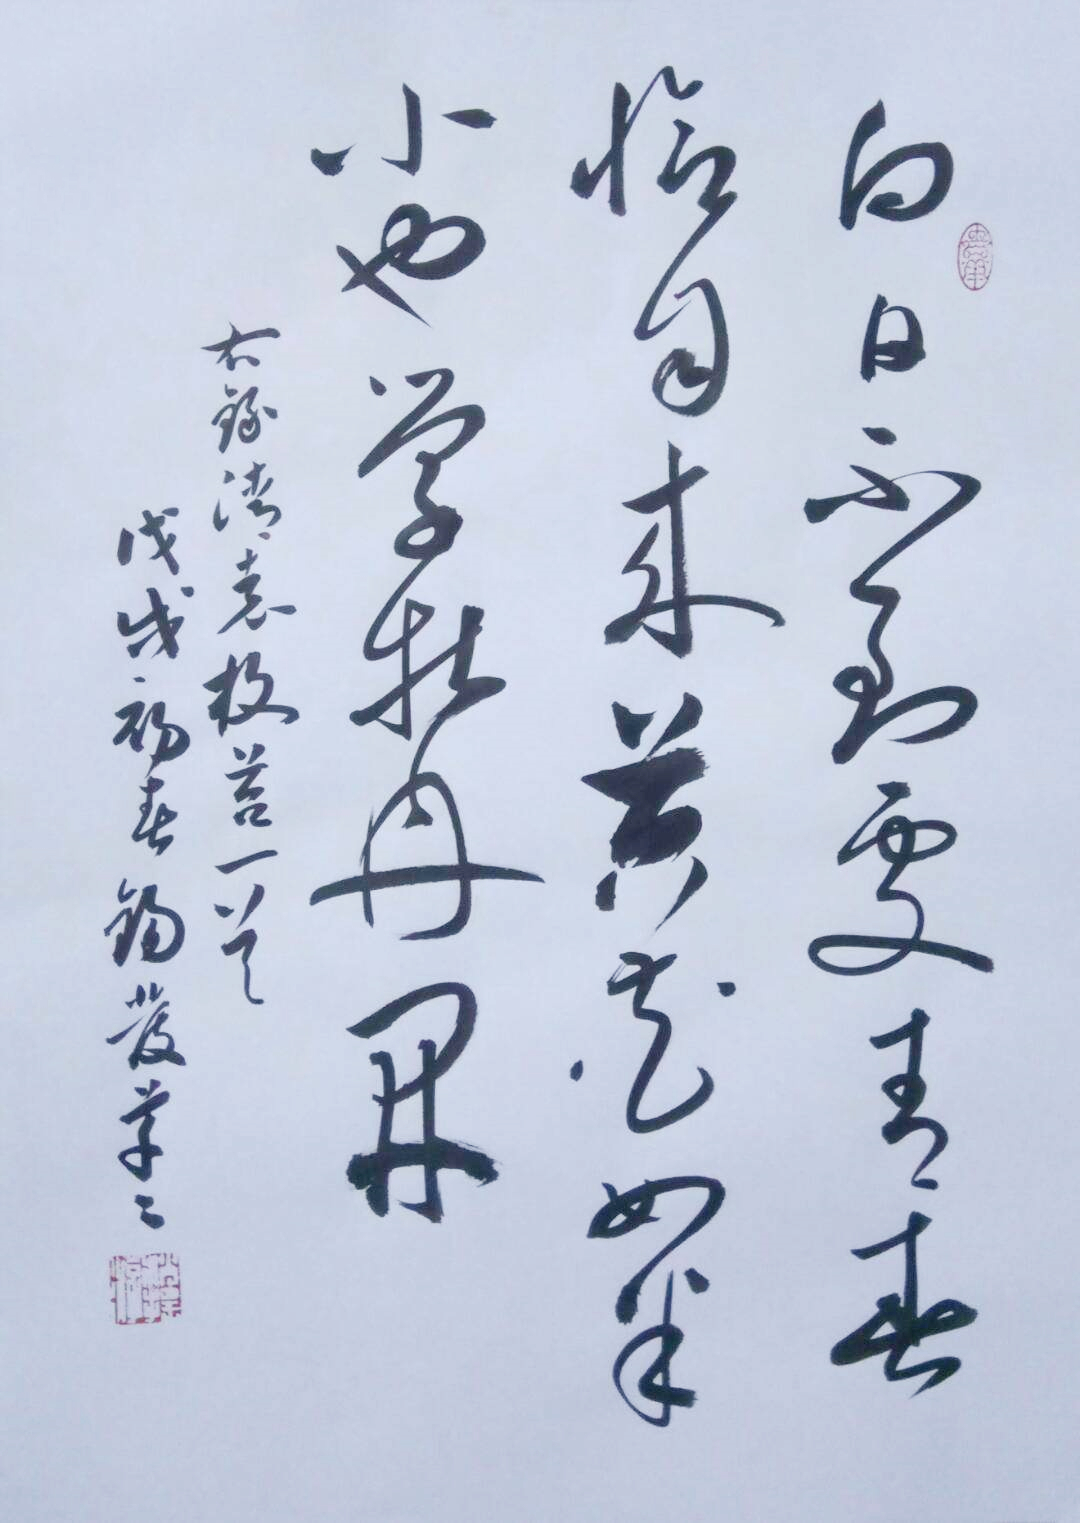 白日不到處青春
恰自来苔花如米
小也学牡丹開
右錄清袁枚苔一首
戊戌初春錫發学之